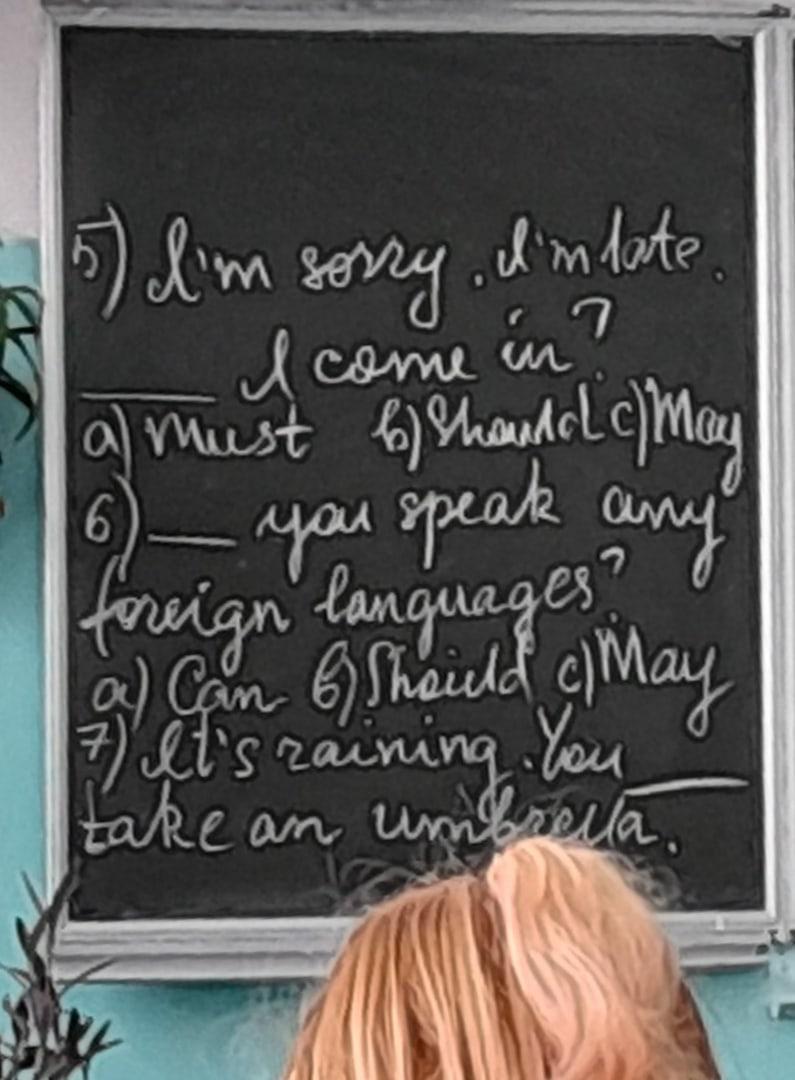 5) I'm sorry. I'm late.
____ I come in?
a) Must b) Should c) May
6) ___ you speak any
foreign languages?
a) Can b) Should c) May
7) It's raining. You ____
take an umbrella.